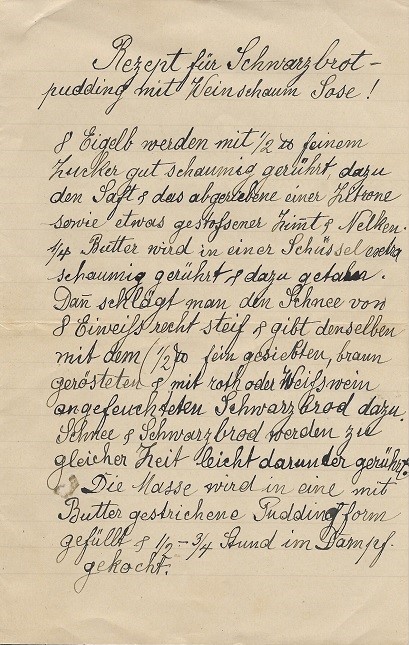 Rezept für Schwarzbrot-
pudding mit Weinschaum Sose!
8 Eigelb werden mit 1/2 ℔ feinem
Zucker gut schaumig gerührt, dazu
den Saft & das abgeriebene einer Zitrone
sowie etwas gestossener Zim̅t & Nelken.
1/4 Butter wird in einer Schüssel extra
schaumig gerührt & dazu getahn.
Dan̅ schlägt man den Schnee von
8 Eiweiss recht steif & gibt denselben
mit dem (1/2) ℔ fein gesiebten, braun
gerösteten & mit roth oder Weisswein
angefeuchteten Schwarzbrod dazu.
Schnee & Schwarzbrod werden zu
gleicher Zeit leicht darunder gerührt.
Die Masse wird in eine mit
Butter gestrichene Puddingform
gefüllt & 1/2 - 3/4 Stund im Dampf
gekocht.